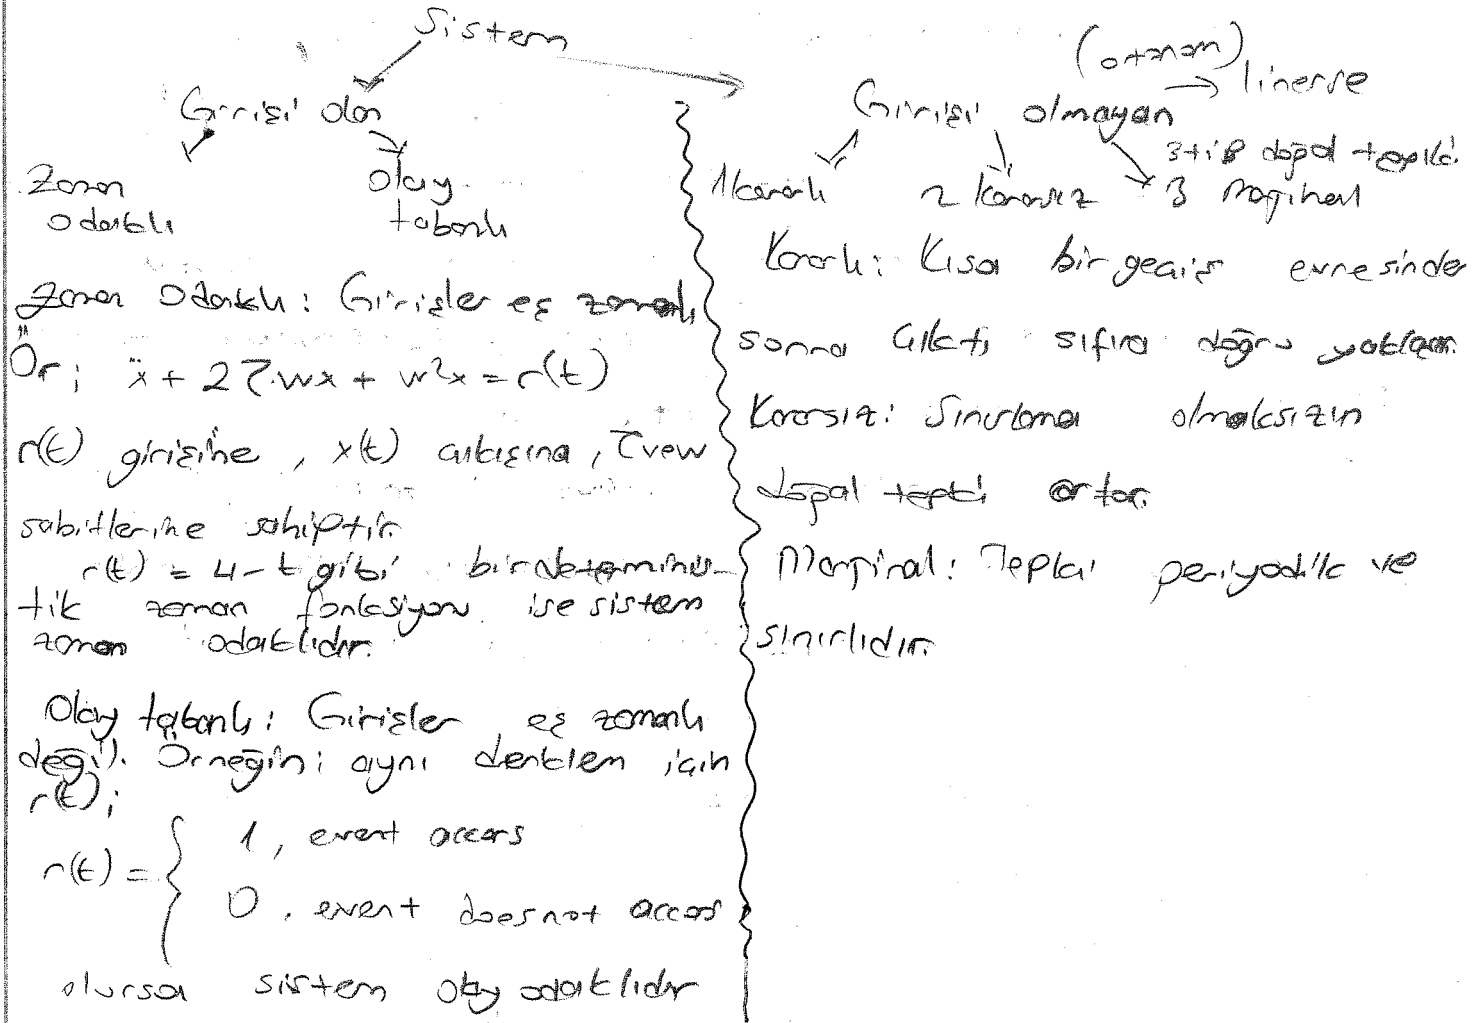 Sistem
Girişi olan
Zaman
odaklı
Olay
tabanlı
Zaman Odaklı: Girişler eş zamanlı
Ör; ẍ + 2ζwx + w²x = r(t)
r(t) girişine, x(t) çıkışına, ζ ve w
sabitlerine sahiptir.
r(t) = 4-t gibi bir determinis-
tik zaman fonksiyonu ise sistem
zaman odaklıdır.
Olay tabanlı: Girişler eş zamanlı
değil. Örneğin; aynı denklem için
r(t);
r(t) = { 1, event occors
0, event does not occors
olursa sistem olay odaklıdır
(otonom)
Girişi olmayan → linerse
3 tip doğal tepki.
1 kararlı 2 kararsız 3 Marjinal
Kararlı: Kısa bir geçiş evresinden
sonra çıktı sıfıra doğru yaklaşır.
Kararsız: Sınırlama olmaksızın
doğal tepki artar.
Marjinal: Tepki periyodik ve
sınırlıdır.